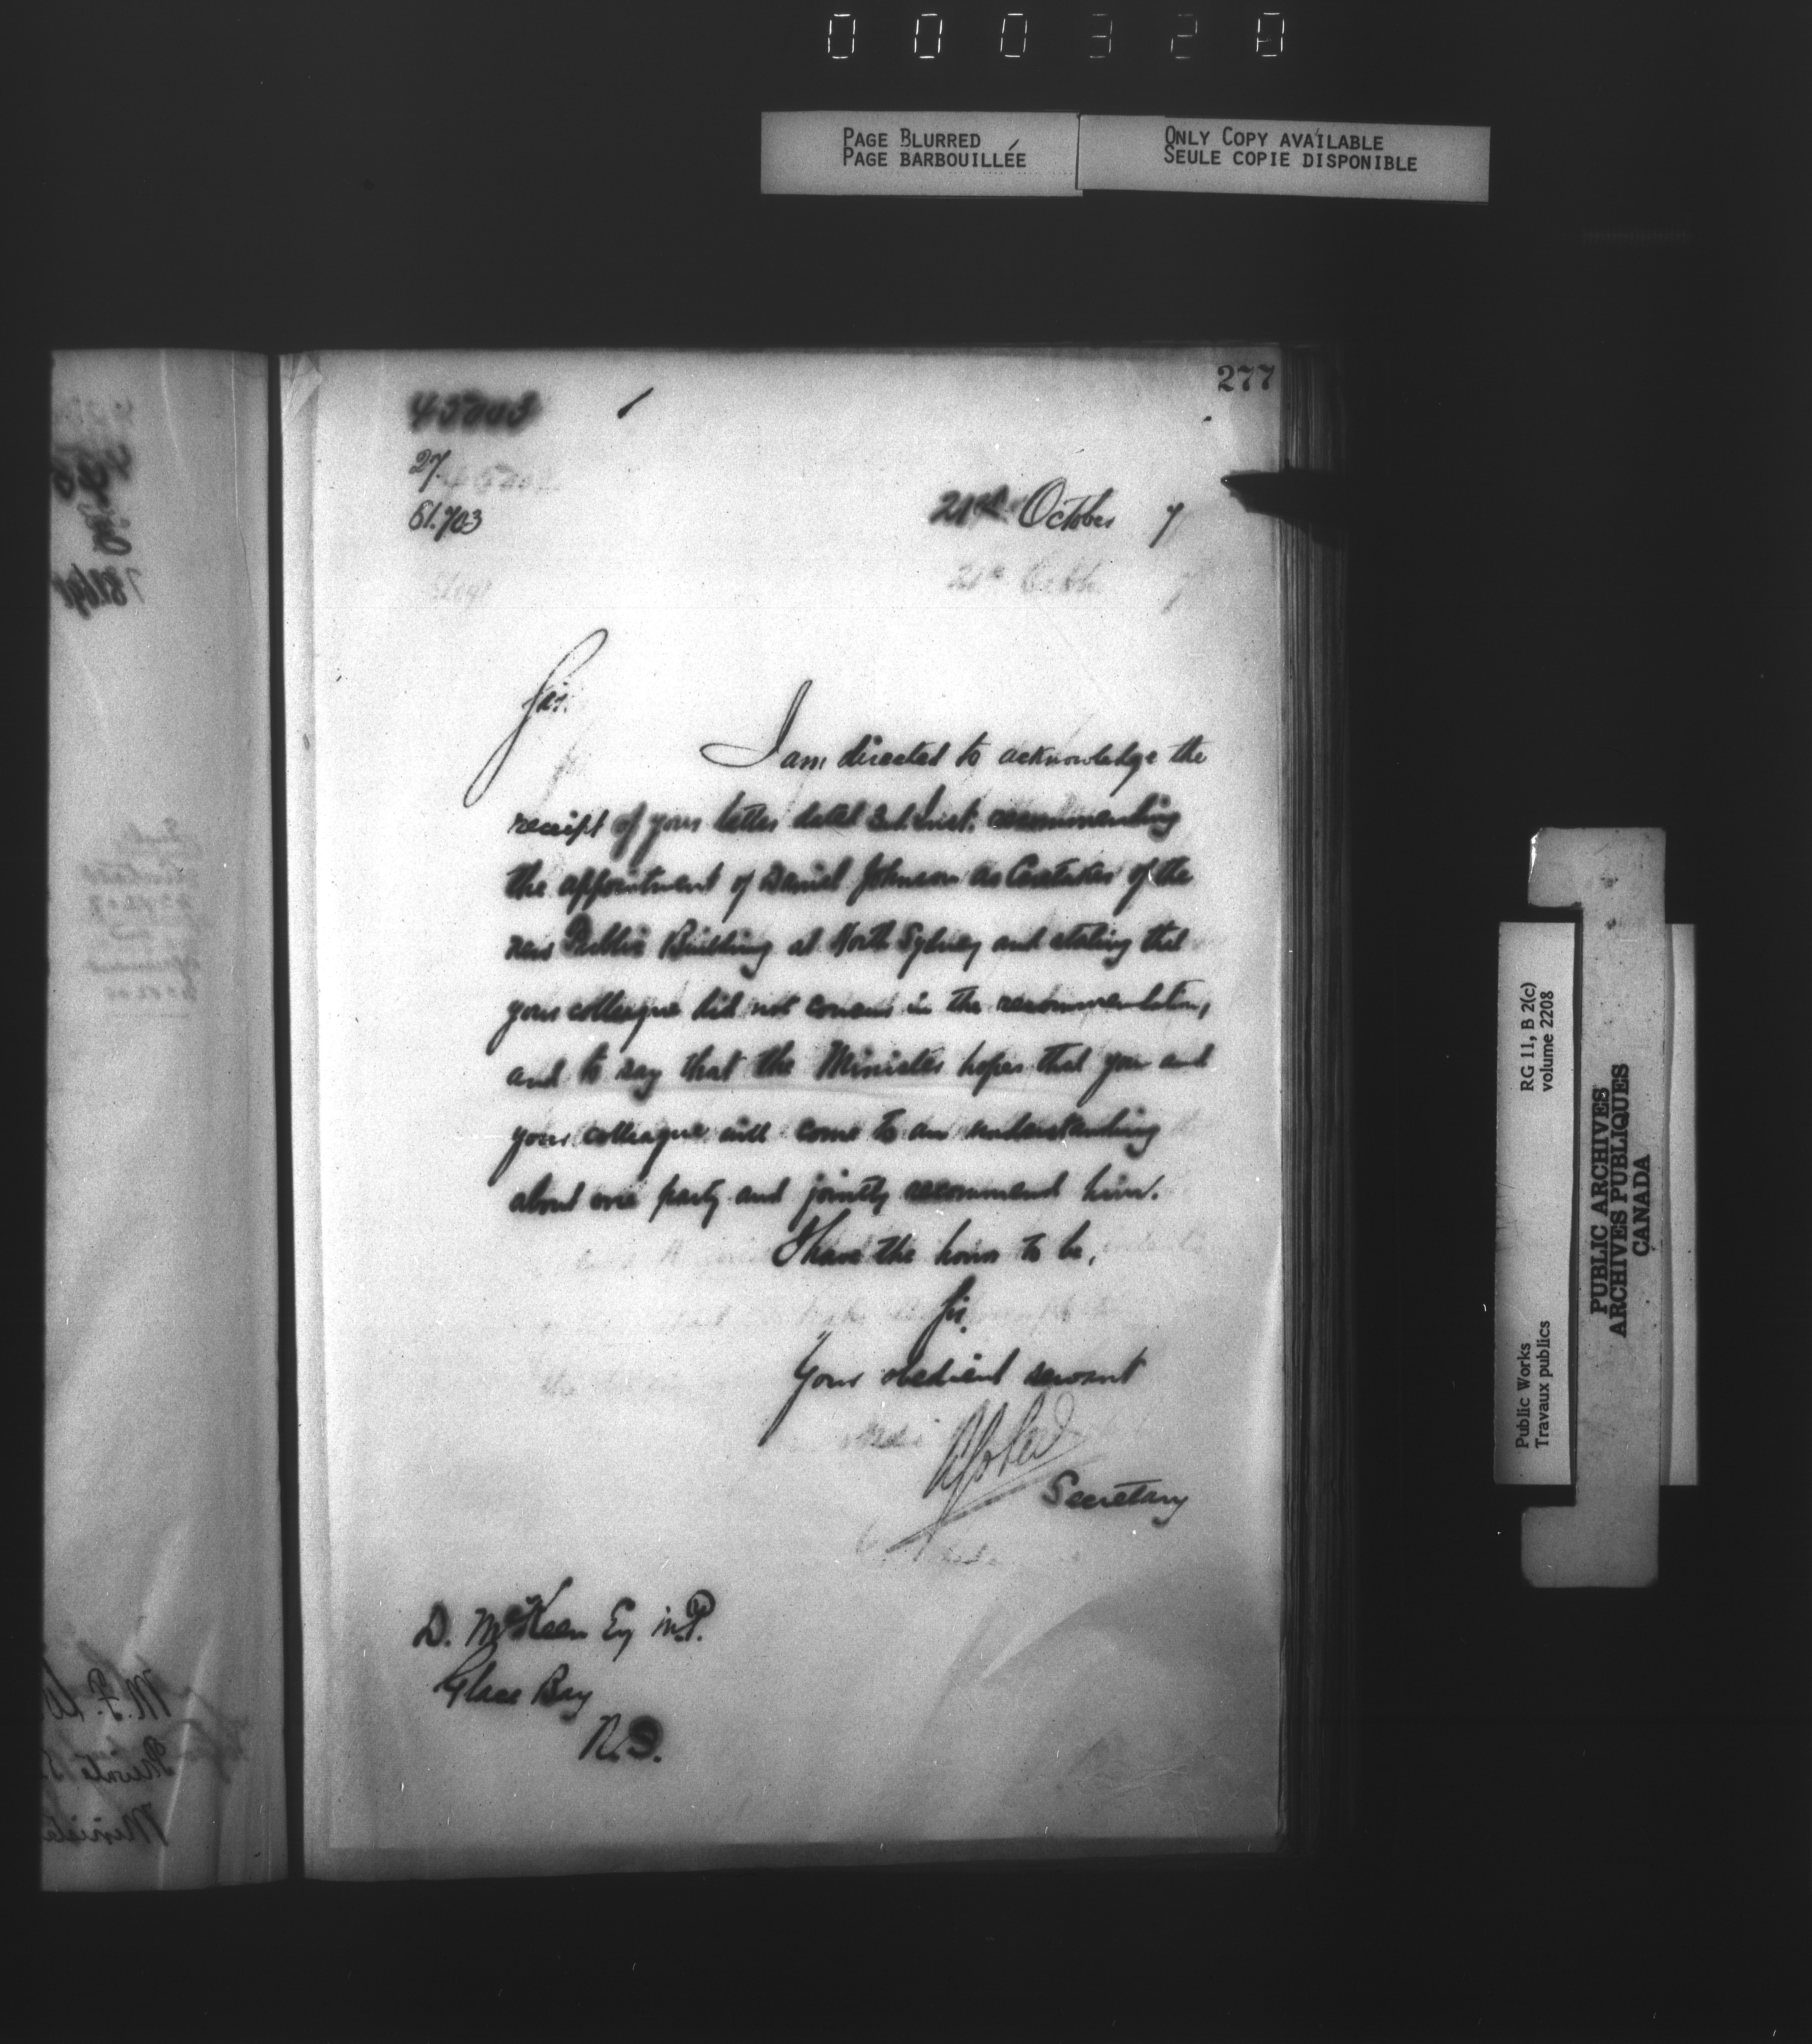 PAGE BLURRED
PAGE BARBOUILLÉE
ONLY COPY AVAILABLE
SEULE COPIE DISPONIBLE
277
27
81.703
21st October 7
Sir.
I am directed to acknowledge the
receipt of your letter dated inst. recommending
the appointment of Daniel Johnson as Caretaker of the
new Public Building at North Sydney and stating that
your colleague did not concur in the recommendation,
and to say that the Minister hopes that you and
your colleague will come to an understanding
about one party and jointly recommend him.
I have the honor to be,
Sir.
Your obedient servant
Secretary
D. McKeen Esq M.P.
Glace Bay
N.S.
Public Works
Travaux publics
RG 11, B 2(c)
volume 2208
PUBLIC ARCHIVES
ARCHIVES PUBLIQUES
CANADA